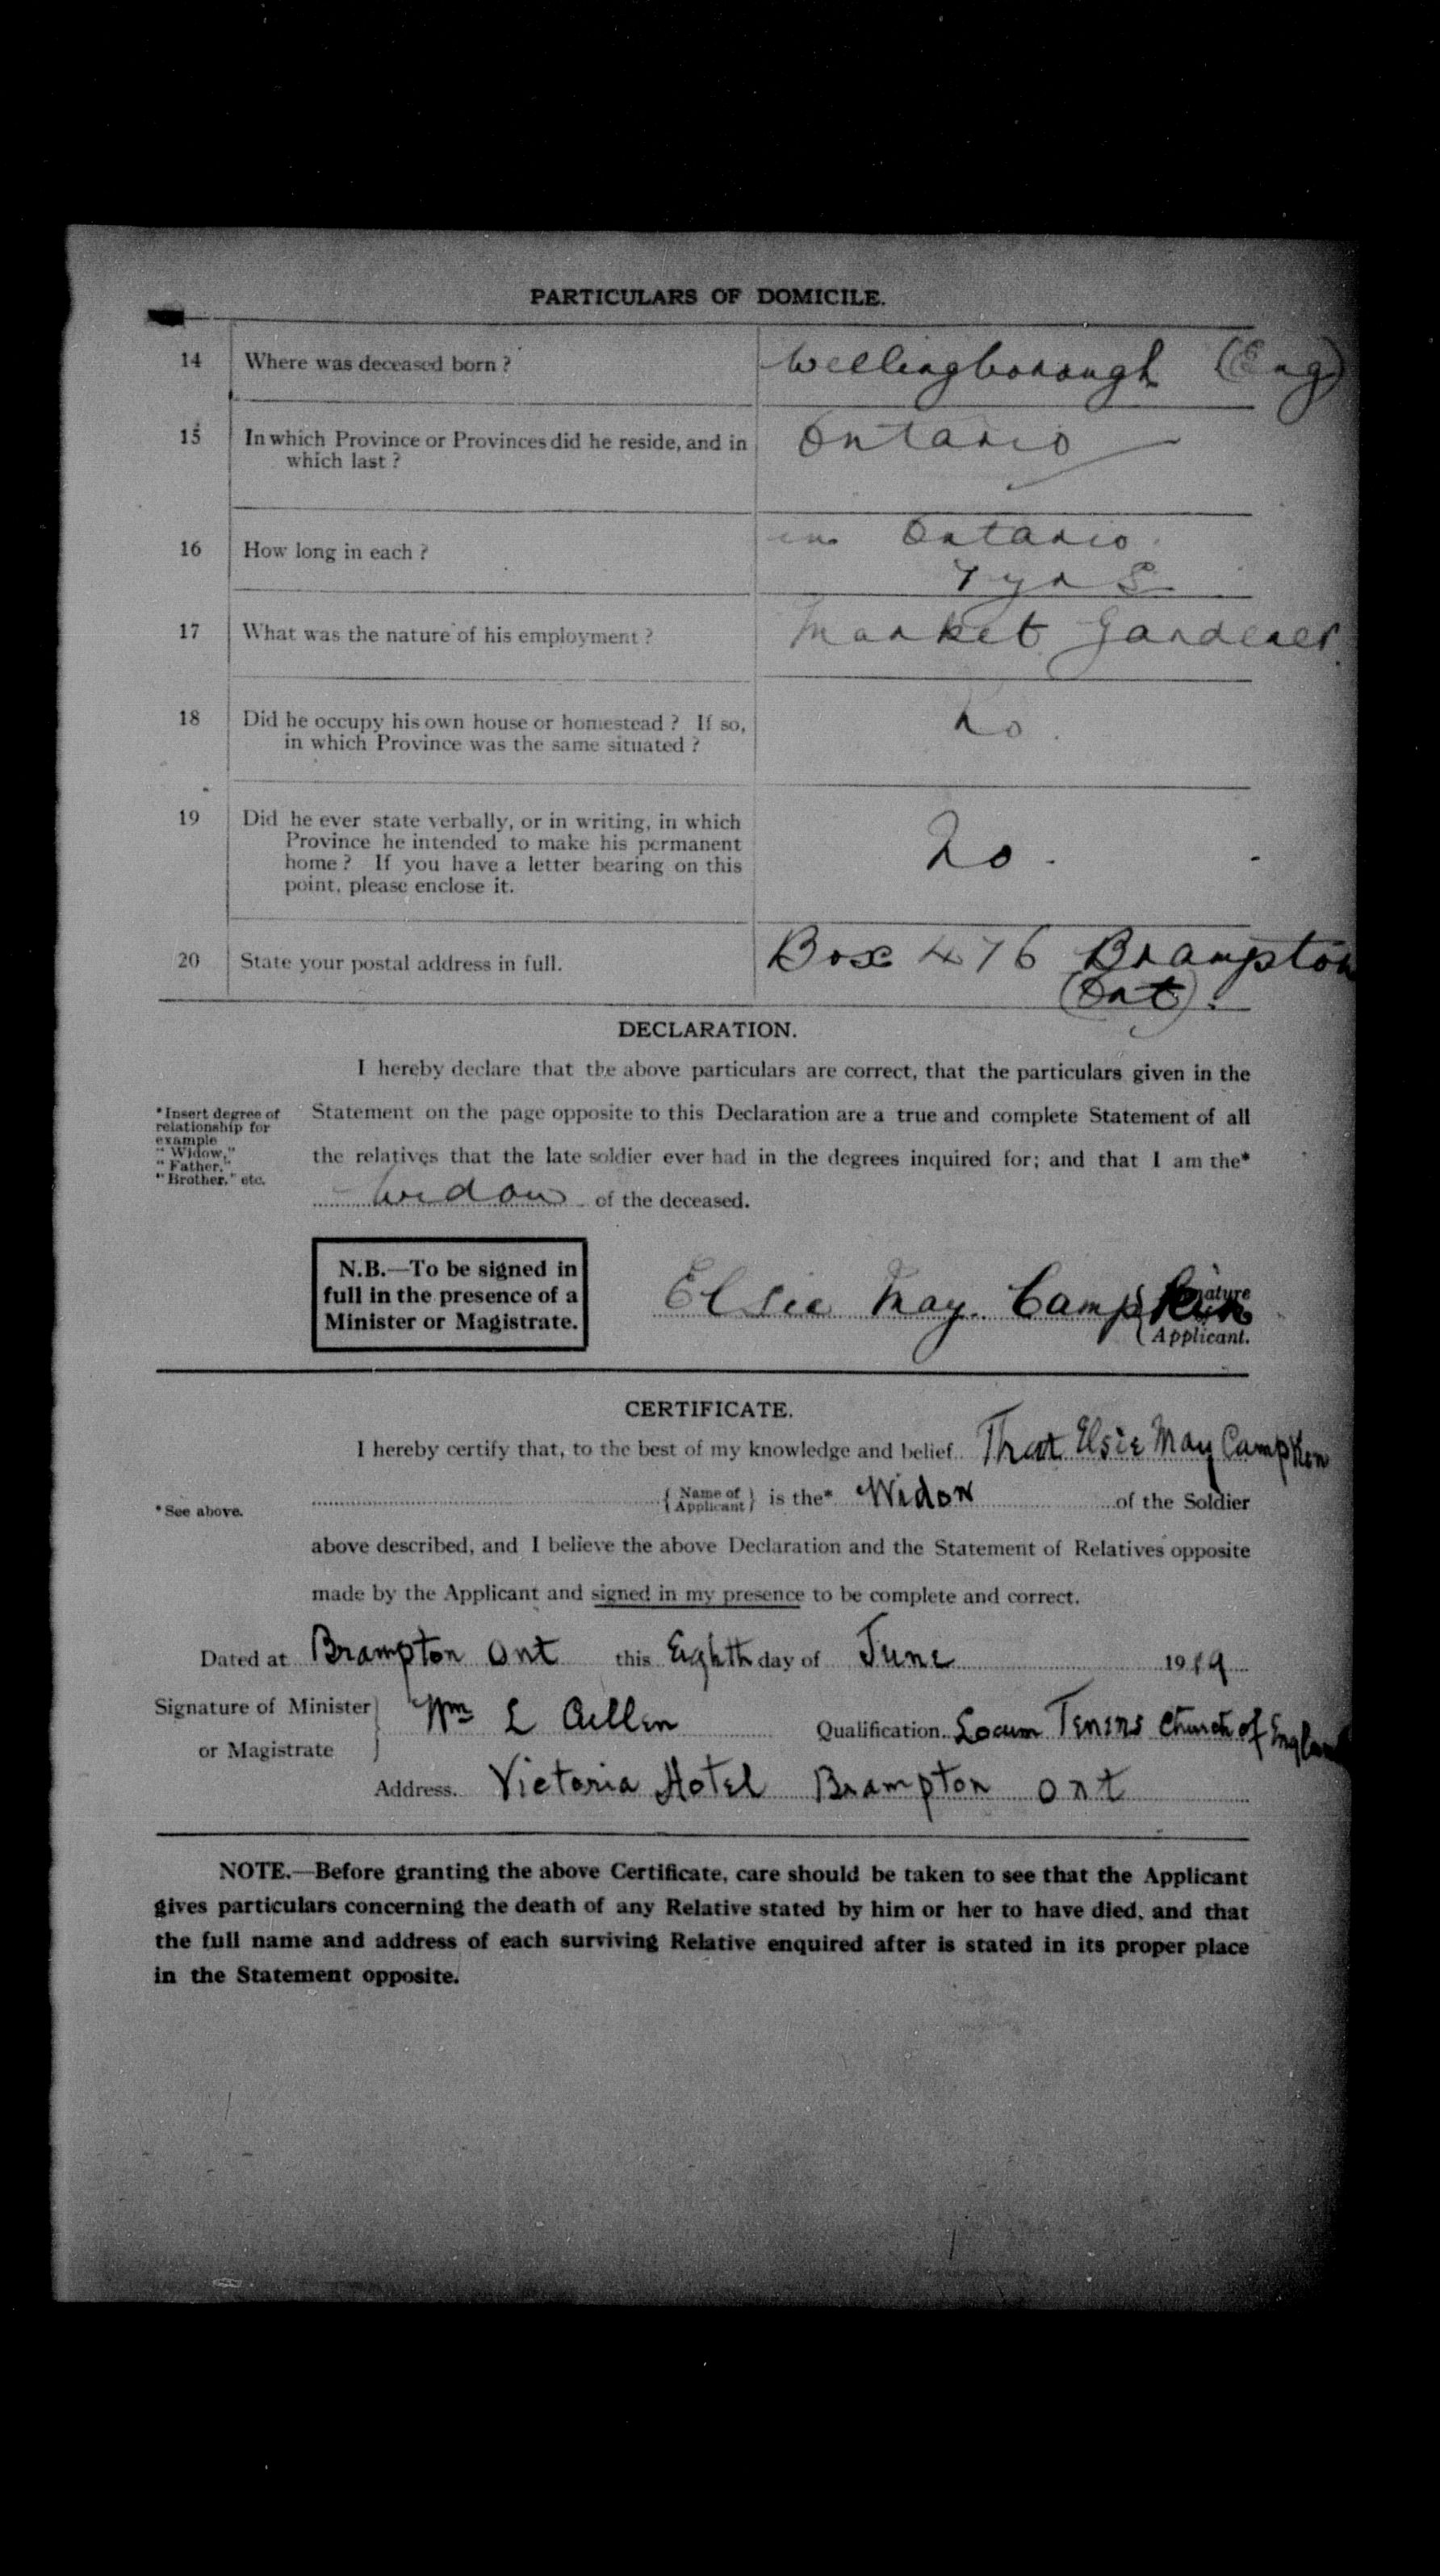 PARTICULARS OF DOMICILE.
14 Where was deceased born? Wellingborough (Eng)
15 In which Province or Provinces did he reside, and in Ontario
which last?
in Ontario.
16 How long in each?
7 yrs
17 What was the nature of his employment? Market Gardener.
18 Did he occupy his own house or homestead? If so, No.
in which Province was the same situated?
19 Did he ever state verbally, or in writing, in which
Province he intended to make his permanent No.
home? If you have a letter bearing on this
point, please enclose it.
20 State your postal address in full. Box 476 Brampton
(Ont).
DECLARATION.
I hereby declare that the above particulars are correct, that the particulars given in the
*Insert degree of relationship for example "Widow," "Father," "Brother," etc.
Statement on the page opposite to this Declaration are a true and complete Statement of all
the relatives that the late soldier ever had in the degrees inquired for; and that I am the*
Widow of the deceased.
N.B.—To be signed in
full in the presence of a
Minister or Magistrate.
Elsie May. Campkin
Applicant.
CERTIFICATE.
I hereby certify that, to the best of my knowledge and belief That Elsie May Campken
{Name of Applicant} is the* Widow of the Soldier
*See above.
above described, and I believe the above Declaration and the Statement of Relatives opposite
made by the Applicant and signed in my presence to be complete and correct.
Dated at Brampton Ont this Eighth day of June 1919
Signature of Minister
or Magistrate } Wm L
Qualification. Locum Tenens Church of England
Address. Victoria Hotel Brampton Ont
NOTE.—Before granting the above Certificate, care should be taken to see that the Applicant
gives particulars concerning the death of any Relative stated by him or her to have died, and that
the full name and address of each surviving Relative enquired after is stated in its proper place
in the Statement opposite.